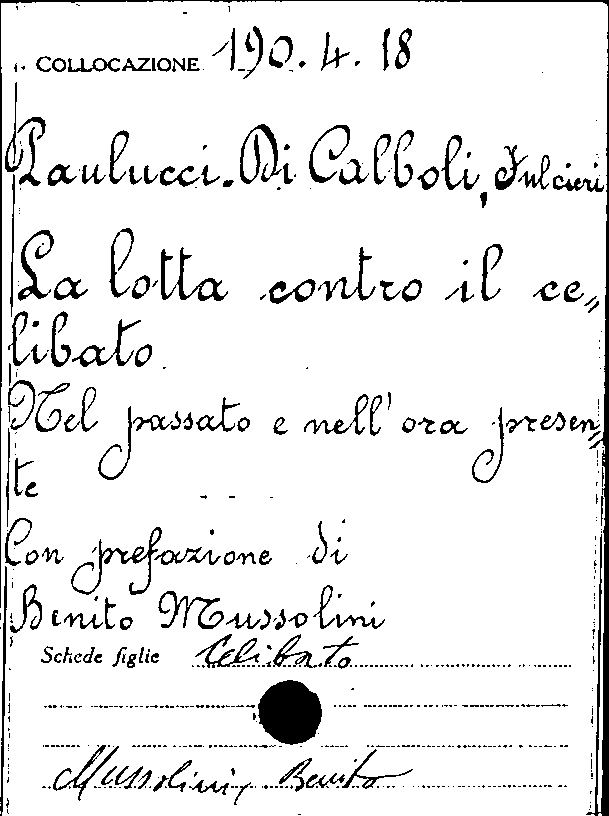 COLLOCAZIONE 190.4.18
Paulucci. Di Calboli, Fulcieri
La lotta contro il ce„
libato
Nel passato e nell'ora presen„
te
Con prefazione di
Benito Mussolini
Schede figlie Celibato
Mussolini, Benito